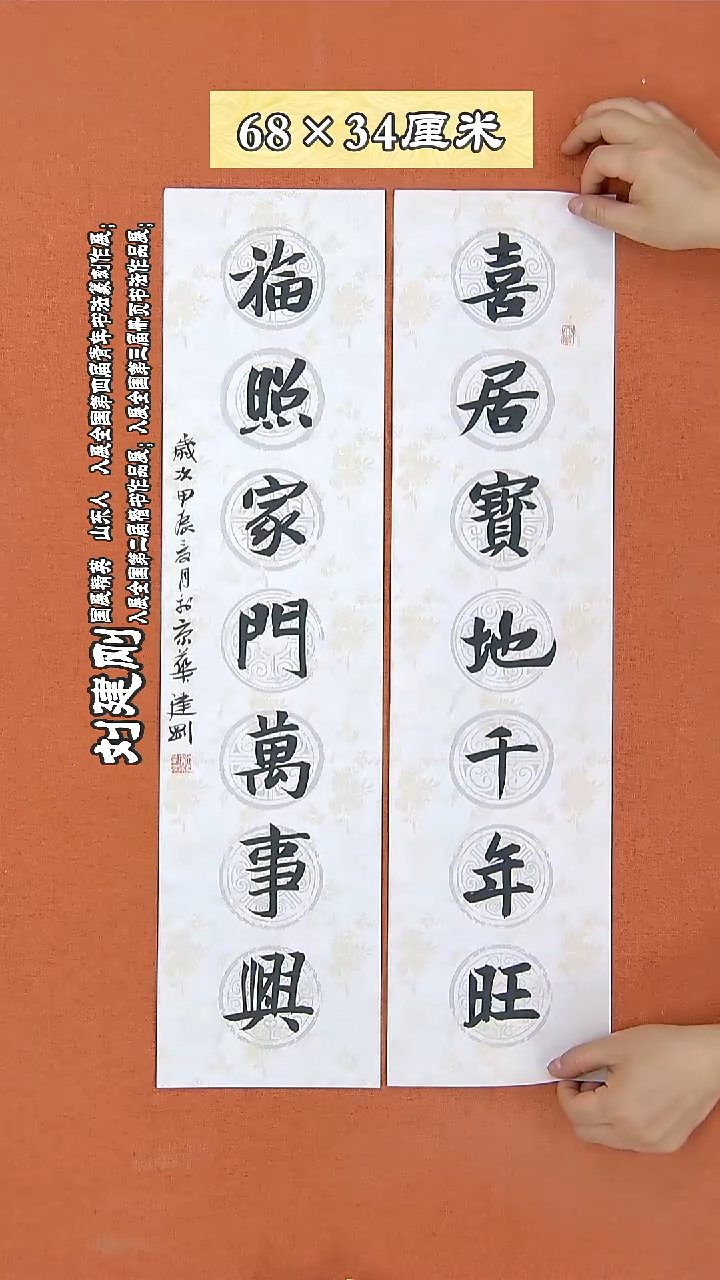 68×34厘米
喜居寳地千年旺
福照家門萬事興
歲次甲辰六月於京華建剛
刘建刚
国展精英 山东人 入展全国第四届青年书法篆刻作展；
入展全国第二届楷书作品展；入展全国第三届册页书法作品展；